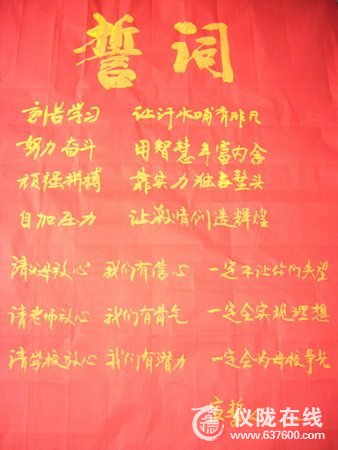 誓词
刻苦学习 让汗水哺育非凡
努力奋斗 用智慧丰富内含
顽强拼搏 靠实力独占鳌头
自加压力 让激情创造辉煌
请父母放心 我们有信心 一定不让你们失望
请老师放心 我们有骨气 一定会实现理想
请学校放心 我们有潜力 一定会为母校争光
仪陇在线
www.637600.com